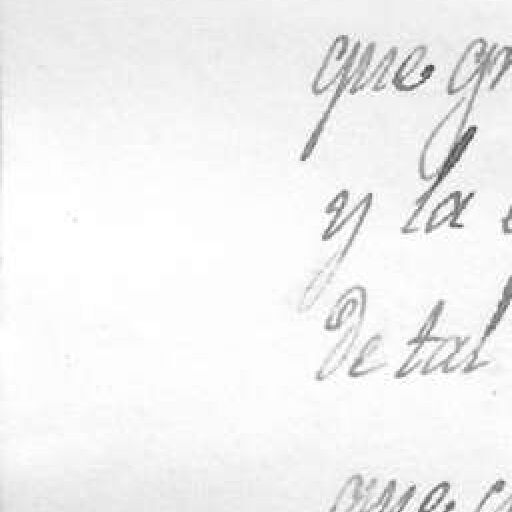 que
y la
De tal
que